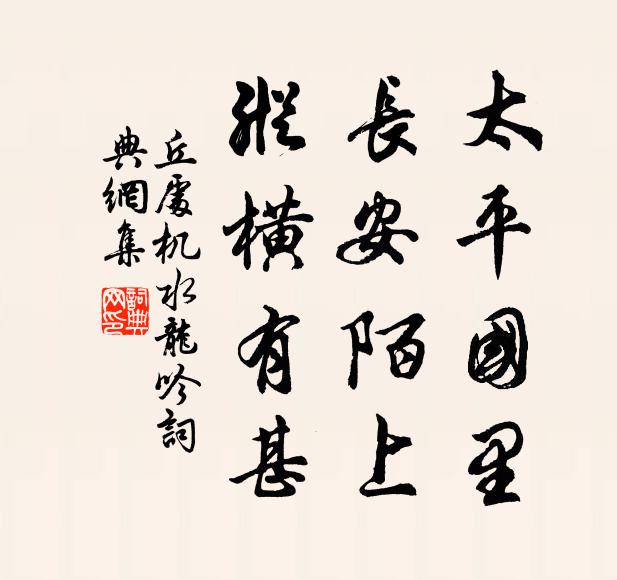 太平國里
長安陌上
縱橫有甚
丘處机水龍吟詞
典網集
詞典
网印